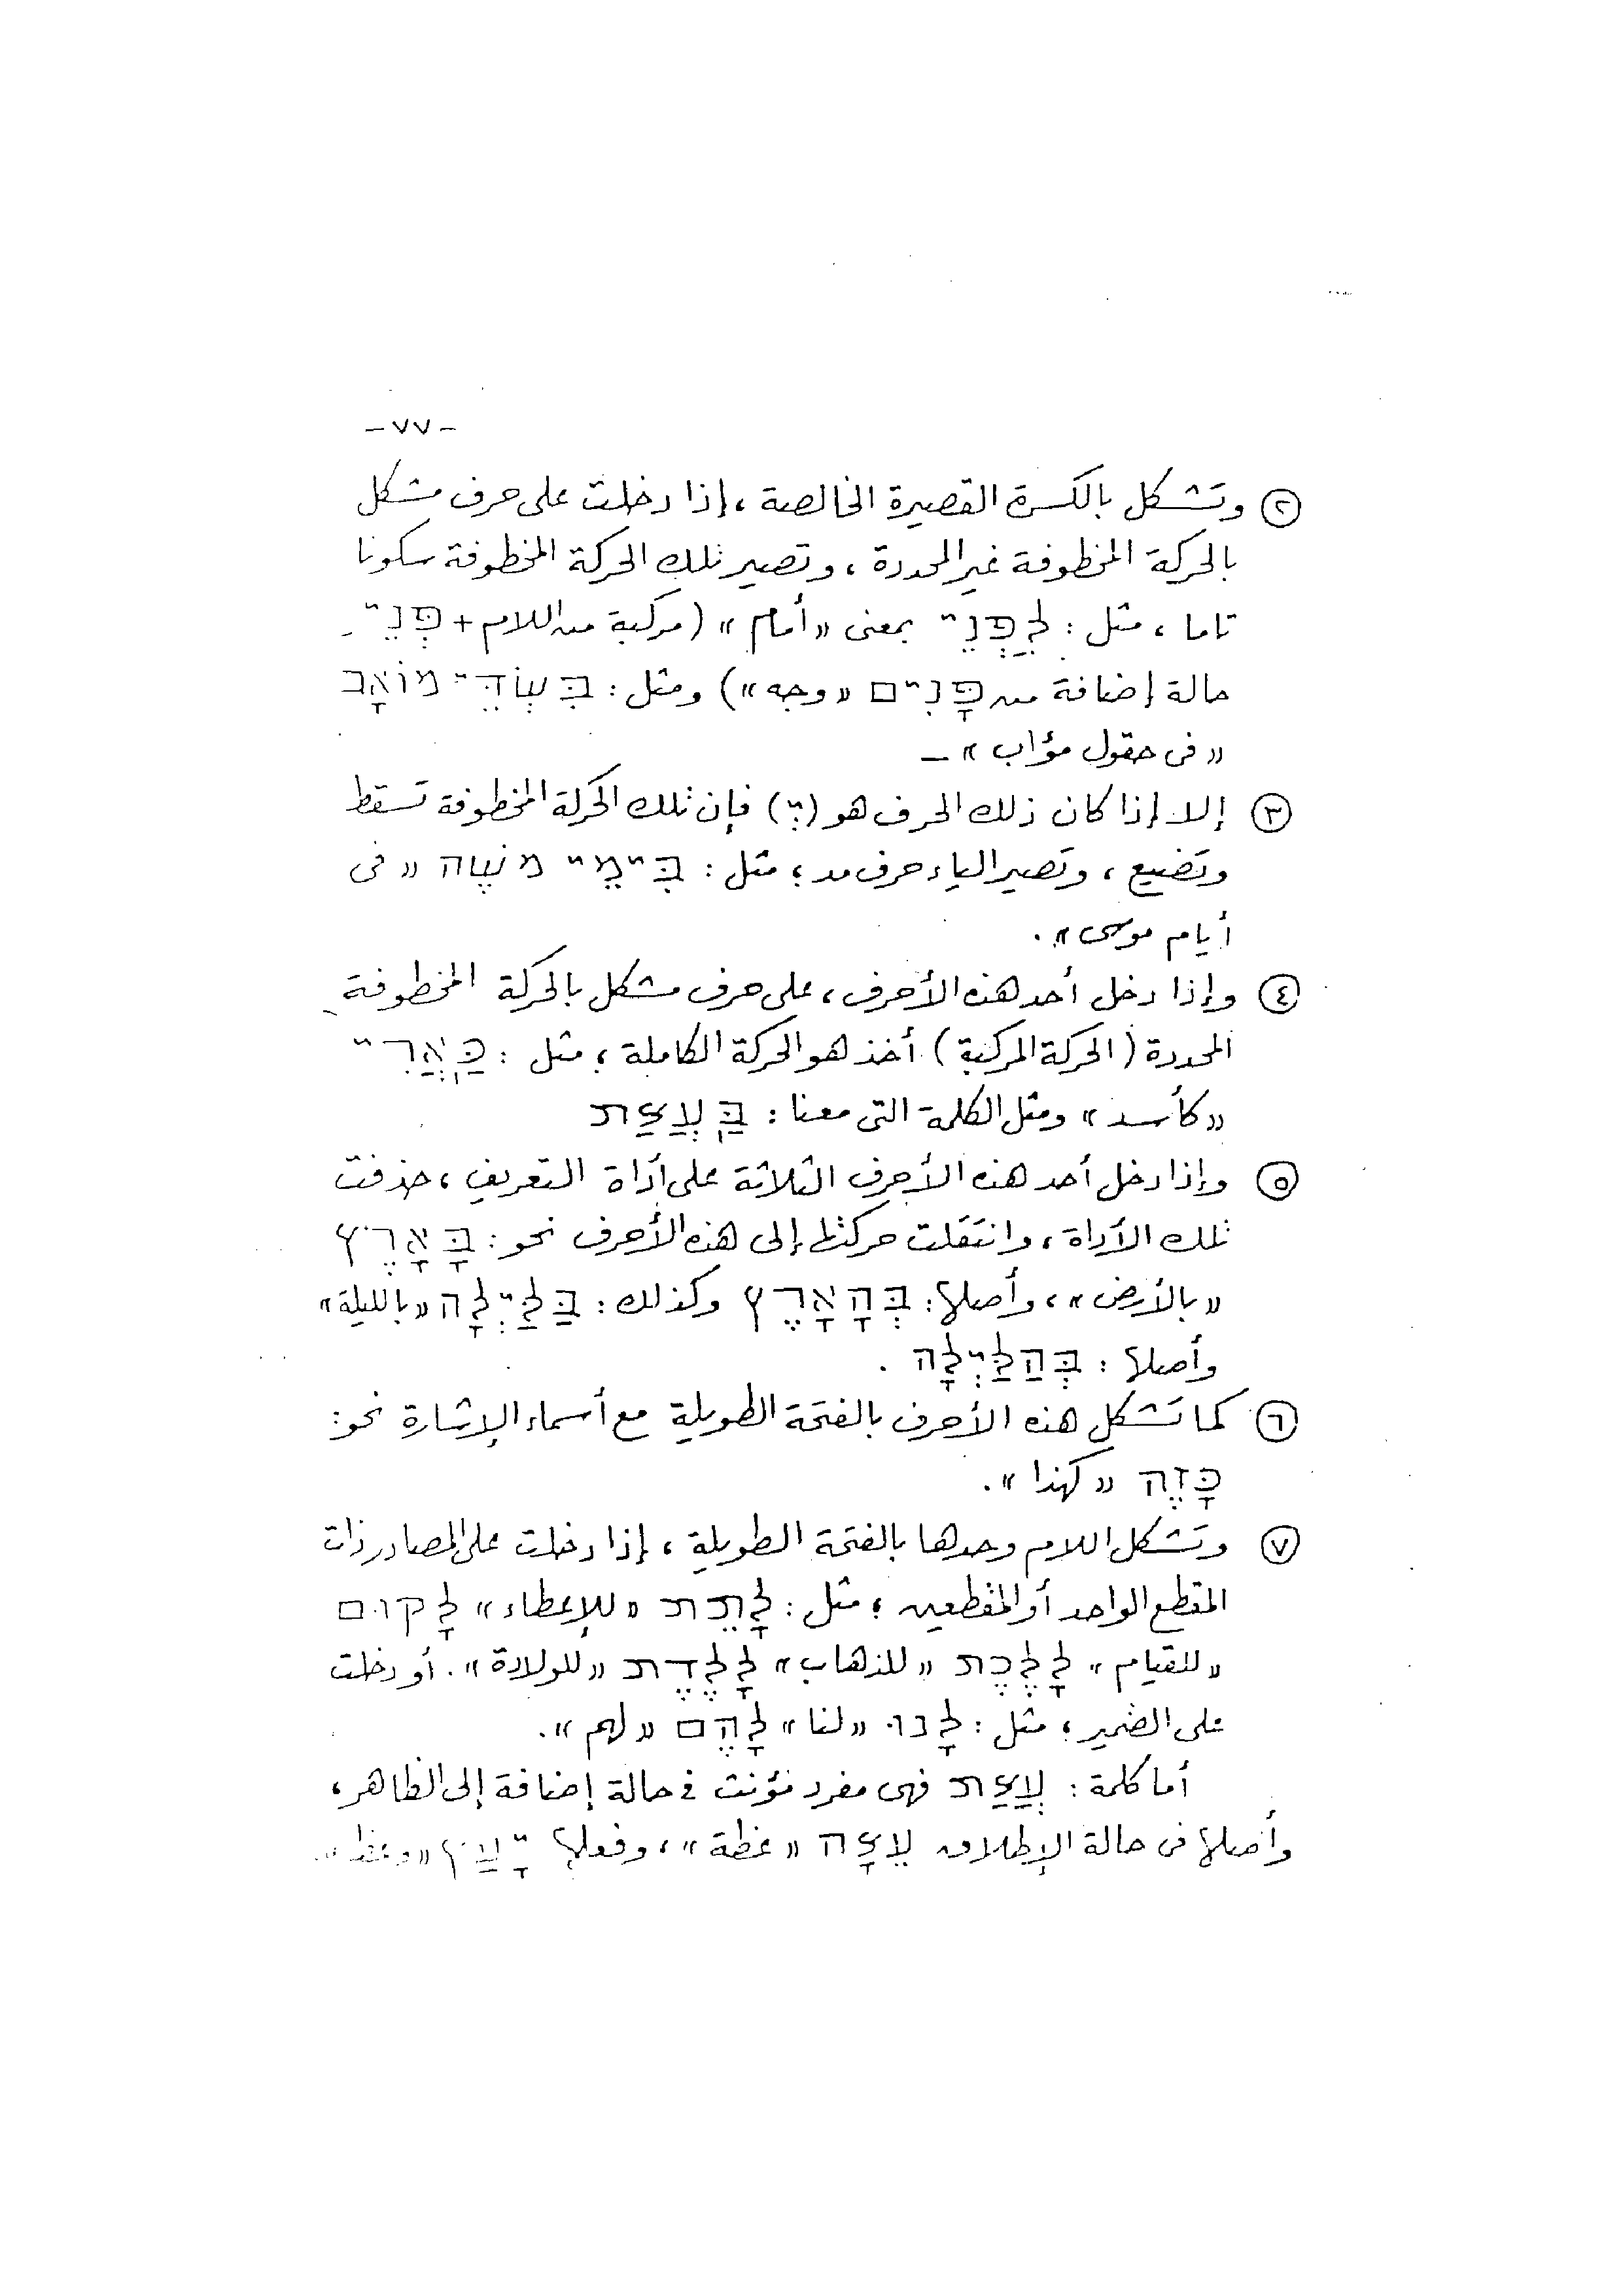 - ٧٧ -
٢ وتَشكل بالكسرة القصيرة الخالصة ، إذا دخلت على حرف مشكل
بالحركة المخطوفة غير المحددة ، وتصير تلك الحركة المخطوفة سكونا
تاما ، مثل : לִפְנֵי بمعنى « أمام » (مركبة من اللام + פְּנֵי -
حالة إضافة من פָּנִים « وجه ») ومثل : בִּשְׂדֵי מוֹאָב
« فى حقول مؤاب » –
٣ إلا إذا كان ذلك الحرف هو (יְ) فإن تلك الحركة المخطوفة تَسقط
وتَضيع ، وتَصير الياء حرف مد ؛ مثل : בִּימֵי מֹשֶׁה « فى
أيام موسى » .
٤ وإذا دخل أحد هذه الأحرف ، على حرف مشكل بالحركة المخطوفة
المحددة (الحركة المركبة) أخذ هو الحركة الكاملة ؛ مثل : כַּאֲרִי
« كأسد » ومثل الكلمة التى معنا : בַּעֲצַת
٥ وإذا دخل أحد هذه الأحرف الثلاثة على أداة التعريف ، حذفت
تلك الأداة ، وانتَقَلت حركتها إلى هذه الأحرف نحو : בָּאָרֶץ
« بالأرض » ، وأصلها : בְּהָאָרֶץ وكذلك : בַּלַּיְלָה « بالليلة »
وأصلها : בְּהַלַּיְלָה .
٦ كما تَشكل هذه الأحرف بالفتحة الطويلة مع أسماء الإشارة نحو :
כָּזֶה « كهذا » .
٧ وتَشكل اللام وحدها بالفتحة الطويلة ، إذا دخلت على المصادر ذات
المقطع الواحد أو المقطعين ؛ مثل : לָתֵת « للإعطاء » לָקוּם
« للقيام » לָלֶכֶת « للذهاب » לָלֶדֶת « للولادة » . أو دخلت
على الضمير ؛ مثل : לָנוּ « لنا » לָהֶם « لهم » .
أما كلمة : עֲצַת فهى مفرد مؤنث فى حالة إضافة إلى الظاهر ،
وأصلها فى حالة الإطلاق עֵצָה « عظة » ، وفعلها יָעַץ « وعظ » .